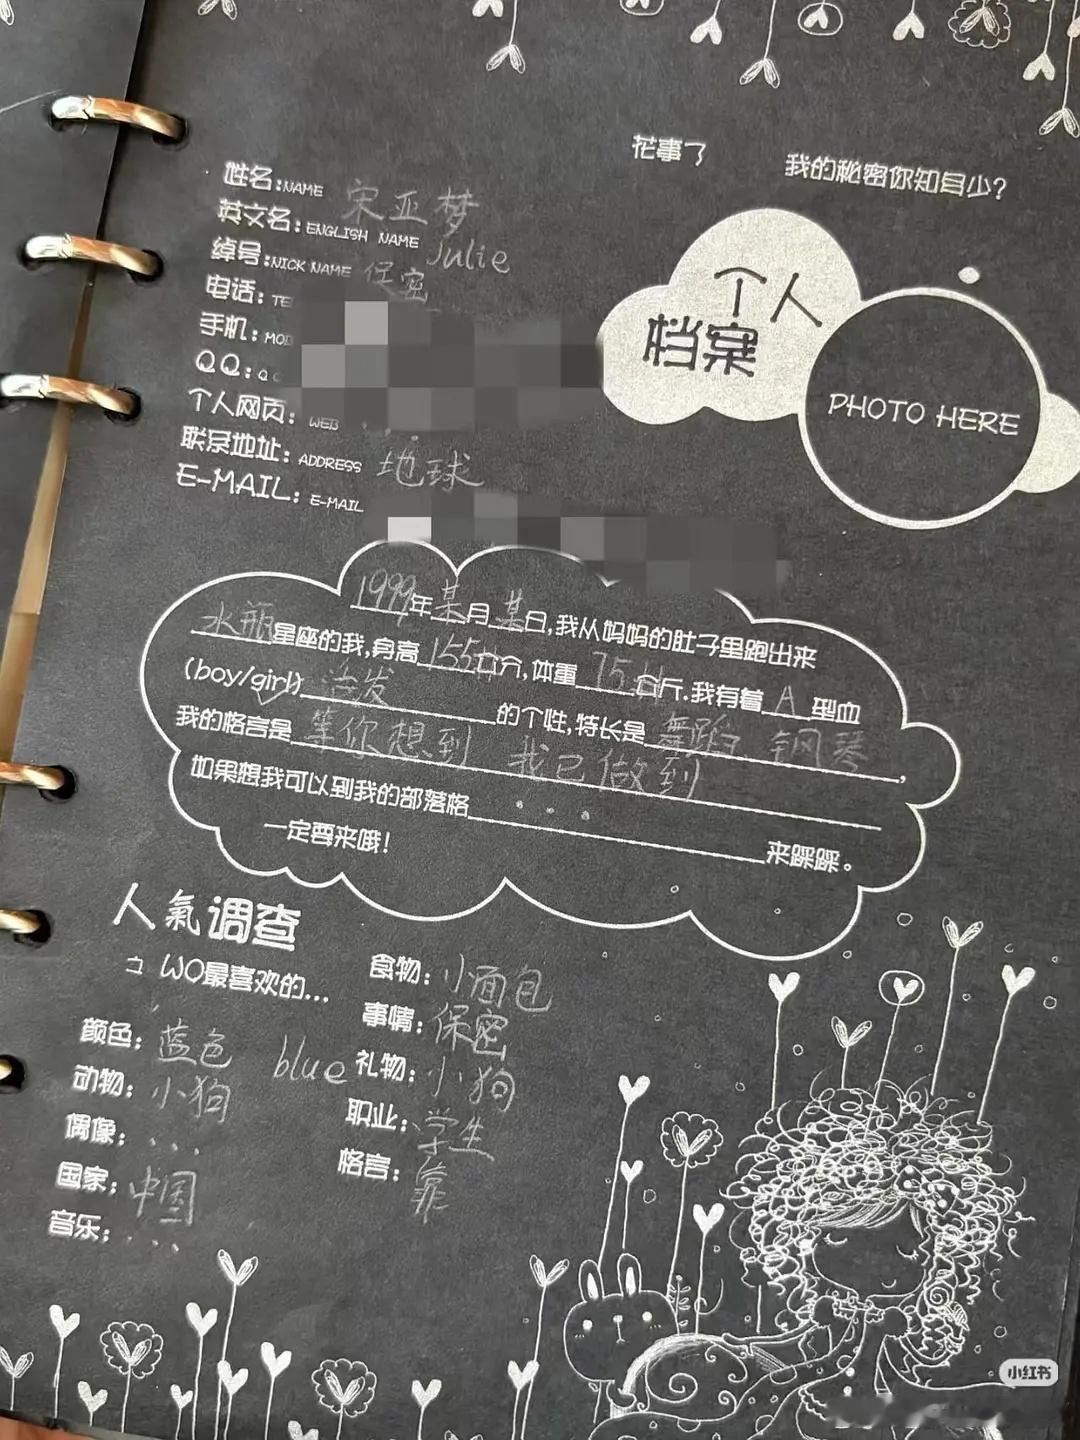 花事了
我的秘密你知多少?
个人
档案
PHOTO HERE
姓名:NAME 宋亚梦
英文名:ENGLISH NAME Julie
绰号:NICK NAME 保密
电话:TE
手机:MO
QQ:Q
个人网页:WEB
联系地址:ADDRESS 地球
E-MAIL:E-MAIL
1999年某月某日,我从妈妈的肚子里跑出来
水瓶星座的我,身高155公分,体重75公斤.我有着A型血
(boy/girl)活发的个性,特长是舞蹈 钢琴,
我的格言是等你想到 我已做到
如果想我可以到我的部落格...来踩踩。
一定要来哦!
人氣调查
WO最喜欢的...
颜色:蓝色 blue
动物:小狗
偶像:...
国家:中国
音乐:...
食物:小面包
事情:保密
礼物:小狗
职业:学生
格言:靠
小红书